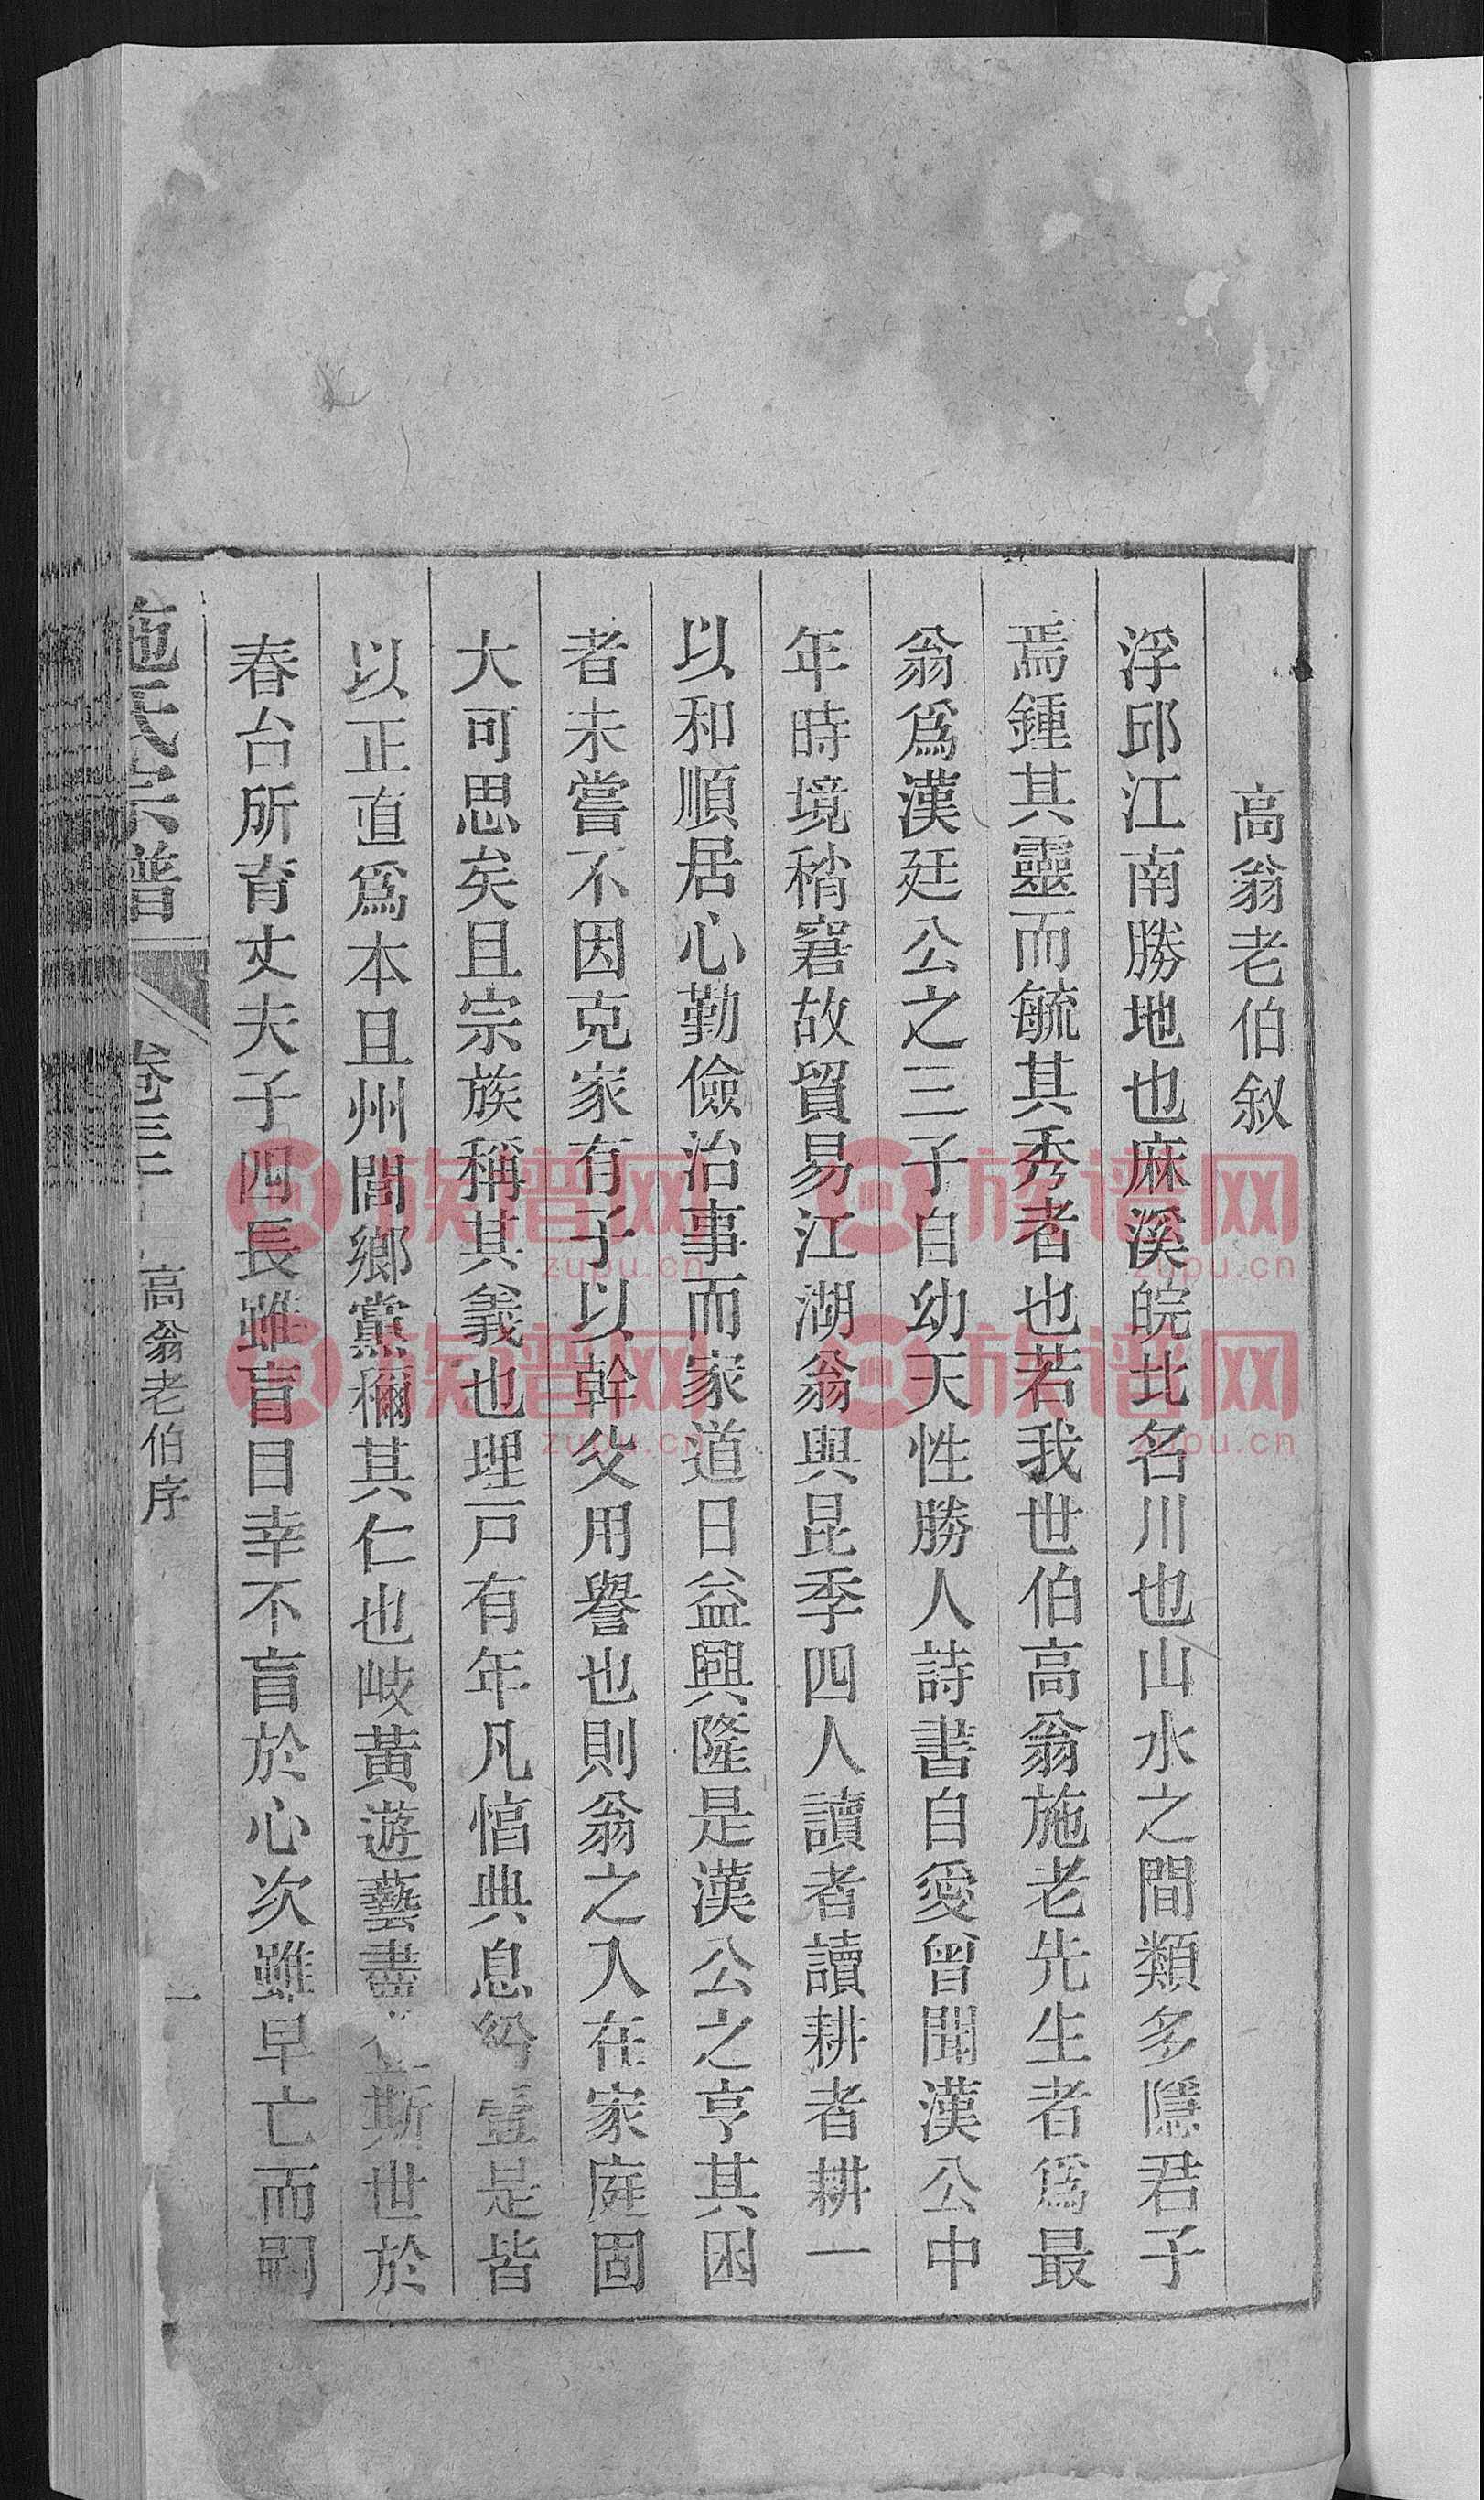 高翁老伯叙
浮邱江南勝地也麻溪皖北名川也山水之間類多隱君子
焉鍾其靈而毓其秀者也若我世伯高翁施老先生者爲最
翁爲漢廷公之三子自幼天性勝人詩書自愛曾聞漢公中
年時境稍窘故貿易江湖翁與昆季四人讀者讀耕者耕一
以和順居心勤儉治事而家道日益興隆是漢公之亨其困
者未嘗不因克家有子以幹父用譽也則翁之入在家庭固
大可思矣且宗族稱其義也理戸有年凡慆典息紛壹是皆
以正直爲本且州閭鄉黨稱其仁也岐黃遊藝壽斯世於
春台所育丈夫子四長雖盲目幸不盲於心次雖早亡而嗣
施氏宗譜
卷三
高翁老伯序
一
族谱网
zupu.cn
族谱网
zupu.cn
族谱网
zupu.cn
族谱网
zupu.cn